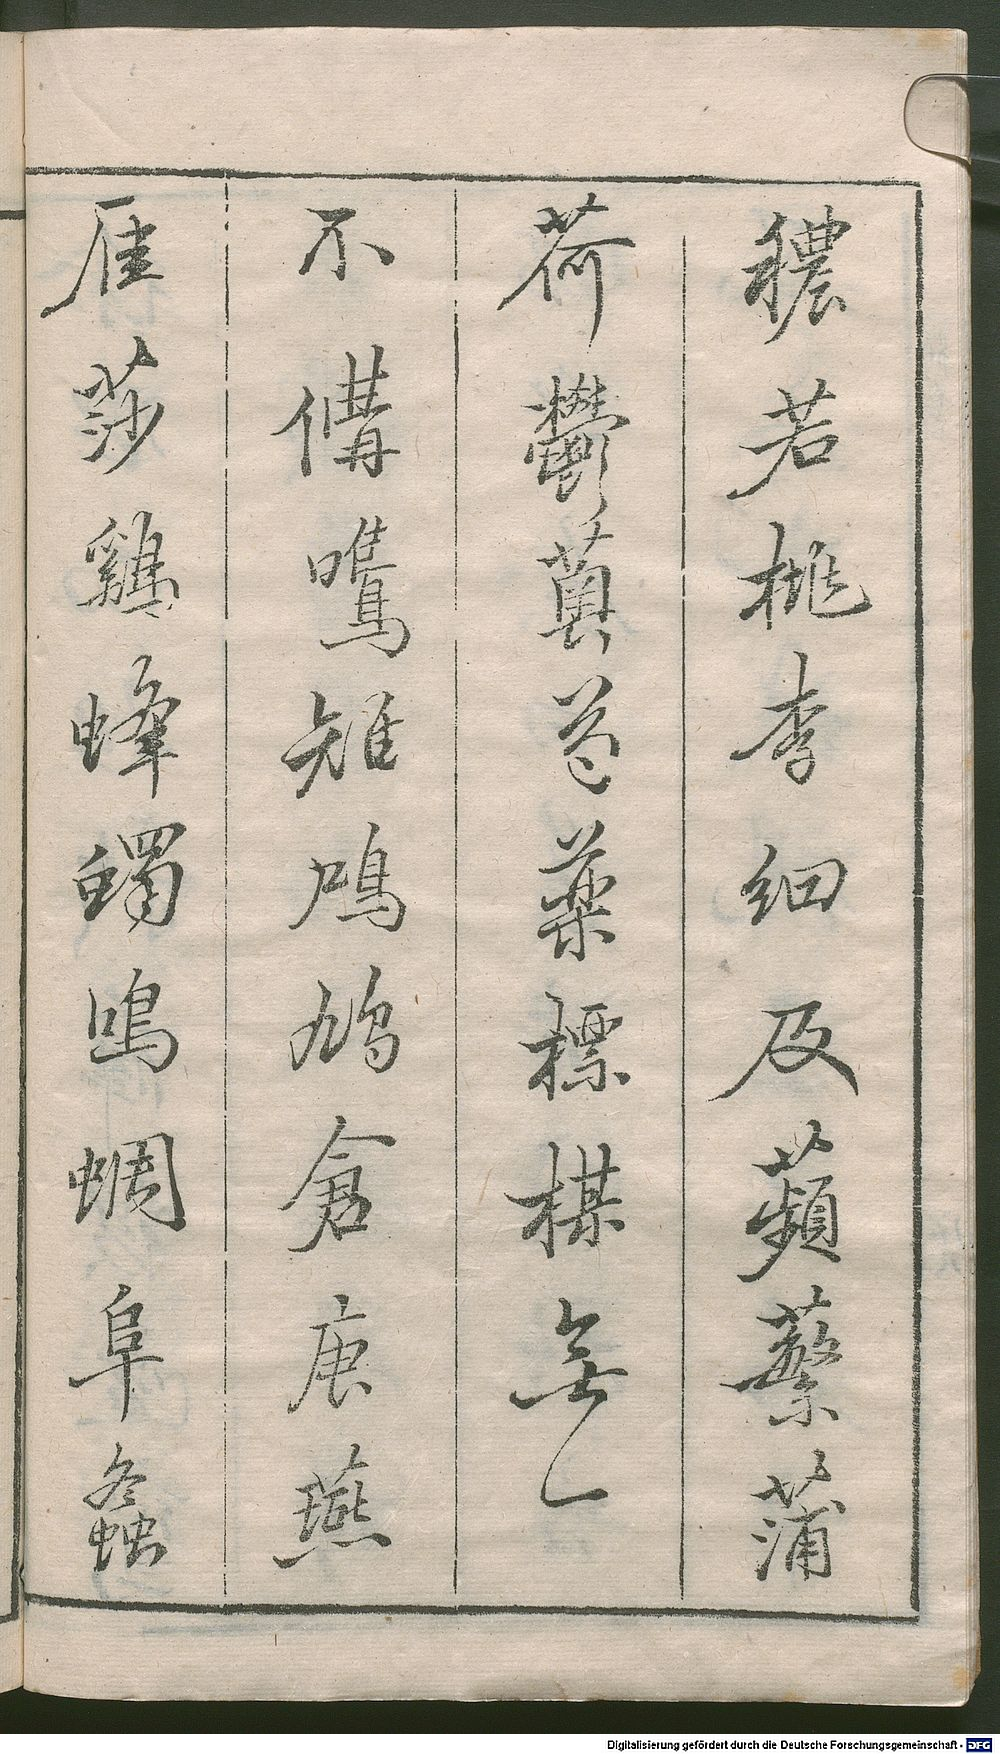 穠若桃李細及蘋蘩蒲
荷鬱薁芍藥標楳無一
不備鳴雉鳲鳩倉庚燕
雁莎鷄蜂蠋鳴蜩阜螽
Digitalisierung gefördert durch die Deutsche Forschungsgemeinschaft - DFG